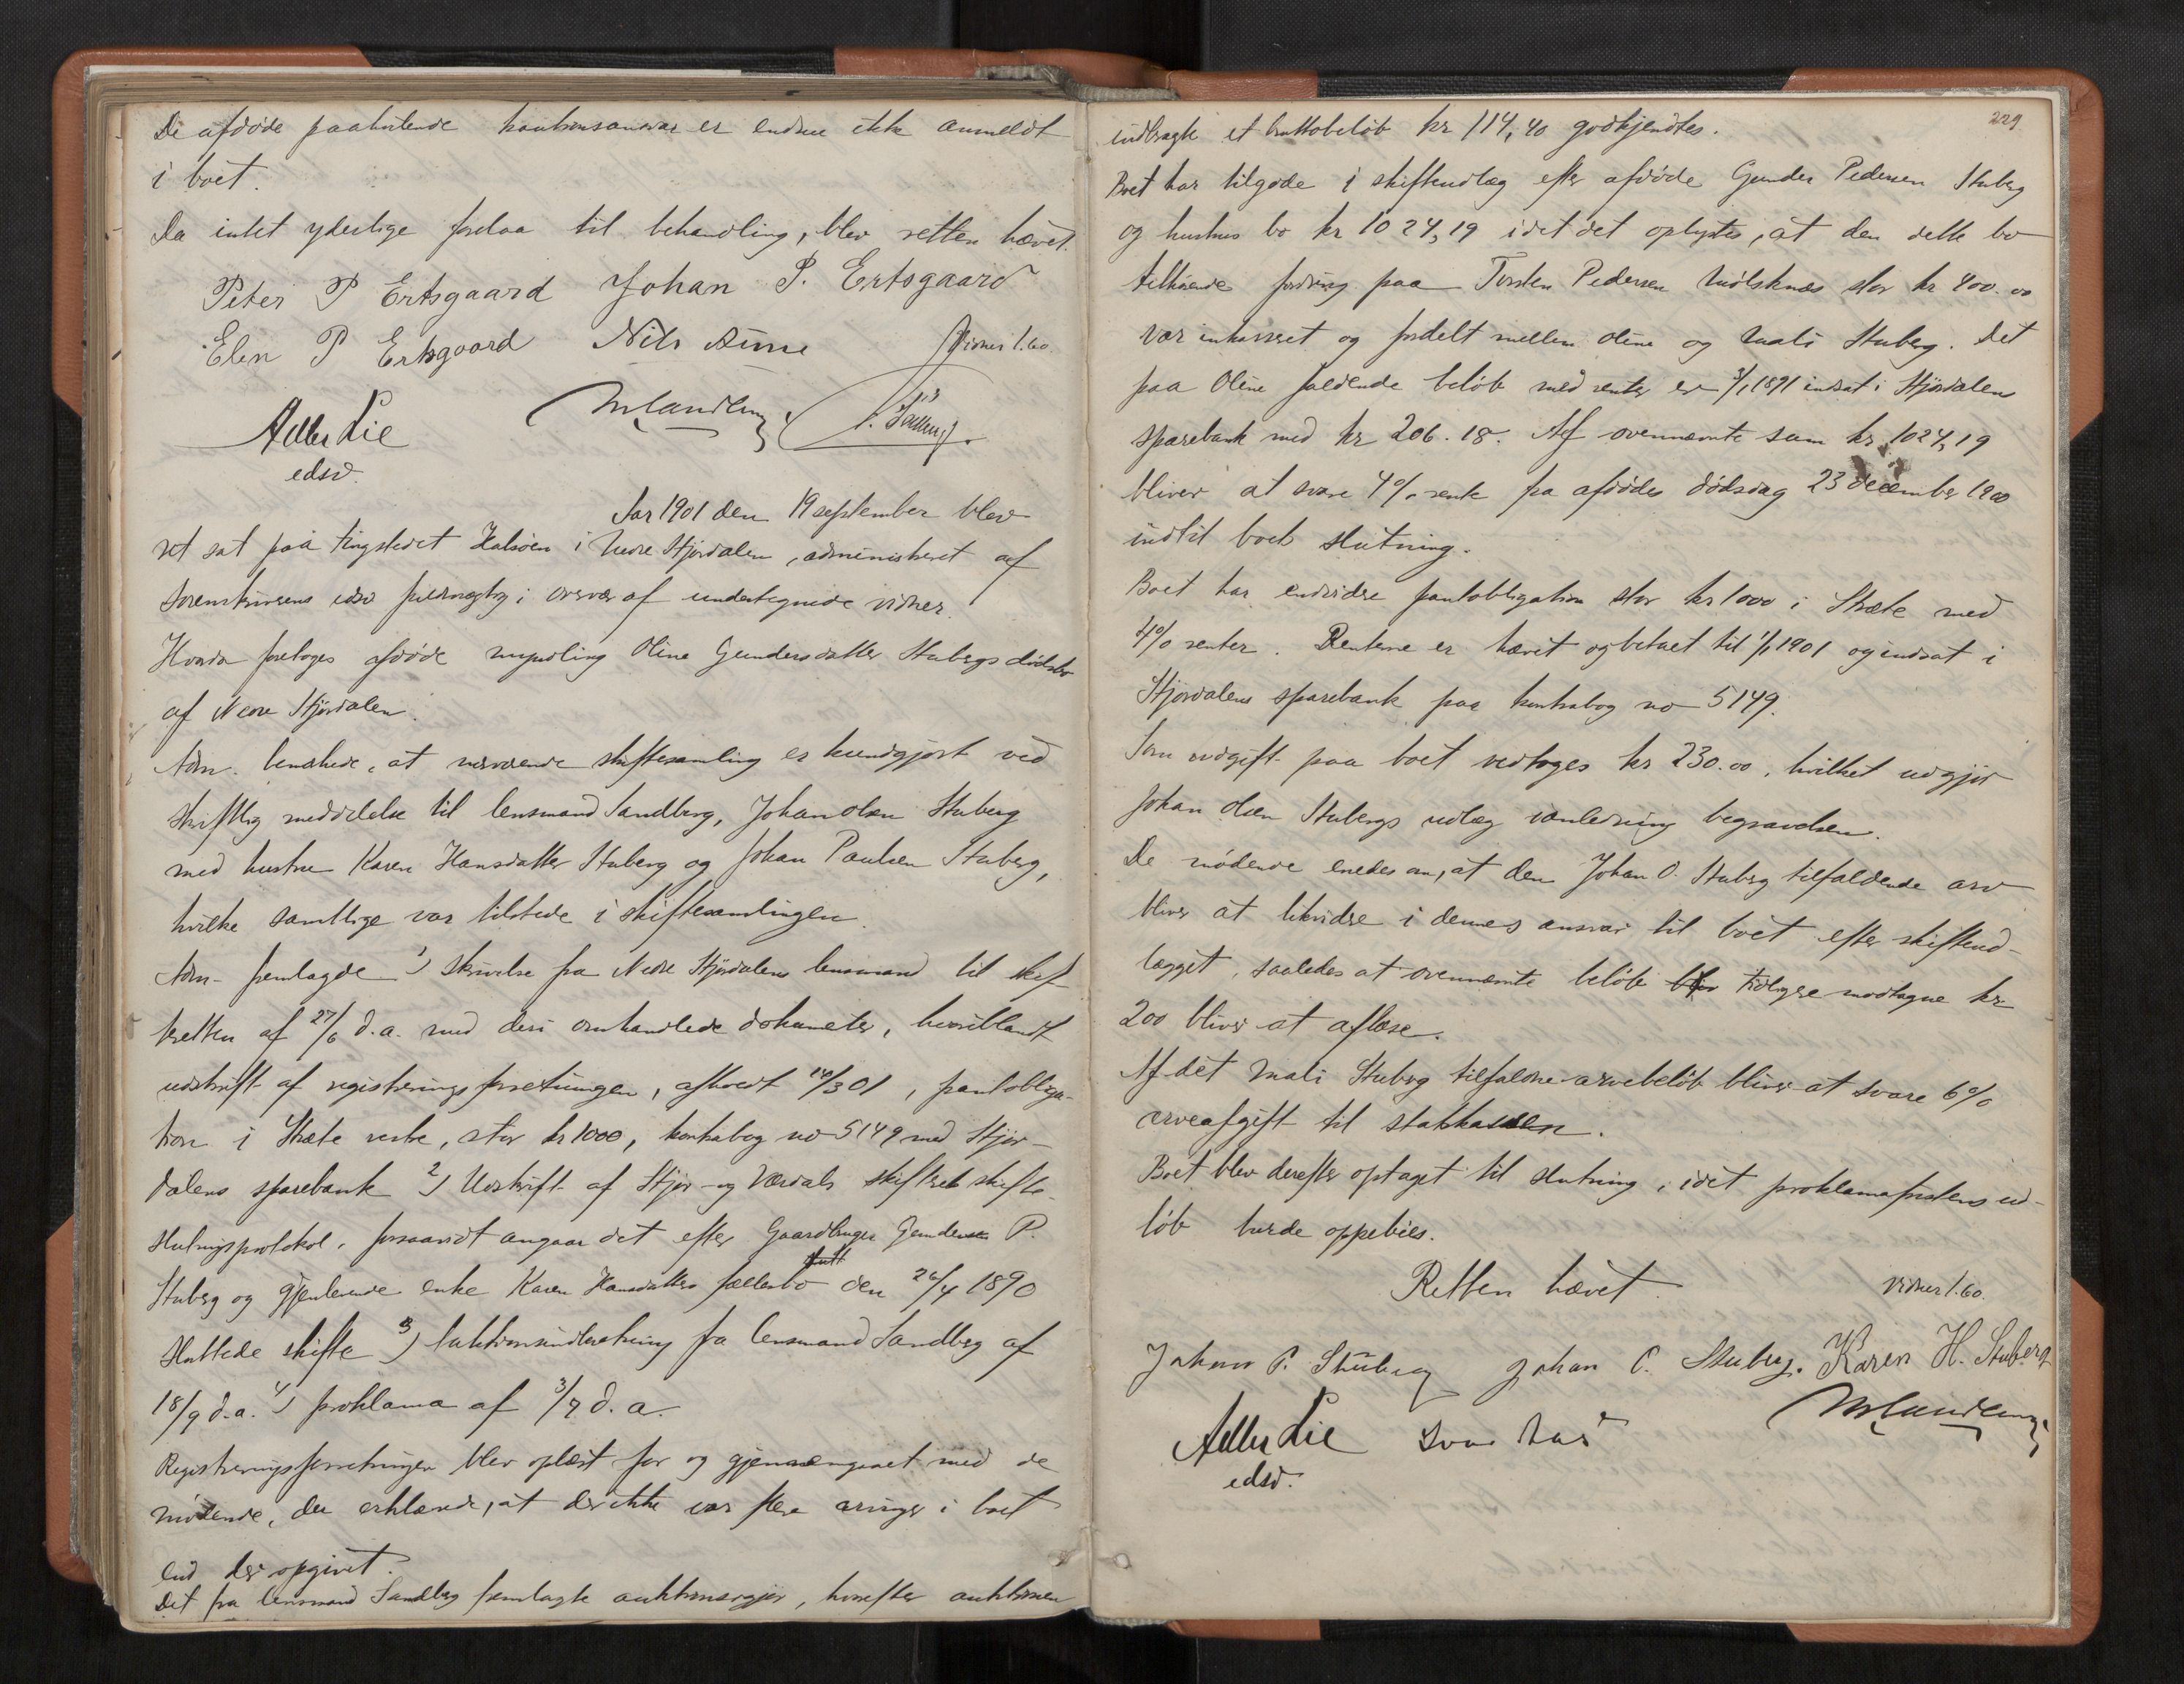 De afdøde paahvilende kautionsansvar er endnu ikke anmeldt
i boet.
Da intet yderlige forelaa til behandling, blev retten hævet.
Peter P Ertsgaard Johan P. Ertsgaard
Elen P Ertsgaard Nils Vidner 1.60.
Adler Lie
edsv.
Aar 1901 den 19 september blev
ret sat paa tingstedet Halsøen i Nedre Stjørdalen, administreret af
sorenskriverens edsv fuldmægtig i overvær af undertegnede vidner.
Hvorda foretoges afdøde myndling Oline Gundersdatter Stubergs dødsbo
af Nedre Stjørdalen.
Adm. bemærkede, at nærværende skiftesamling er kundgjort ved
skriftlig meddelelse til lensmand Sandberg, Johan Olsen Stuberg
med hustru Karen Hansdatter Stuberg og Johan Paulsen Stuberg,
hvilke samtlige var tilstede i skiftesamlingen.
Adm. fremlagde 1) skrivelse fra Nedre Stjørdalens lensmand til skif
teretten af 27/6 d.a. med deri omhandlede dokumeter, hvoriblandt
udskrift af registreringsforretningen, afholdt 14/3 01, pantobliga-
tion i Skrete vestre, stor kr 1000, kontrabog no 5149 med Stjør-
dalens sparebank 2) Udskrift af Stjør- og Værdals skifterets skifte-
slutningsprotokol, forsaavidt angaar det efter Gaardbruger Gunder P.
Stuberg og gjenlevende enke Karen Hansdatters fællesbo den 26/4 1890
sluttede skifte 3) auktionsindberetning fra lensmand Sandberg af
18/9 d.a. 4) proklama af 3/7 d.a.
Registreringsforretningen blev oplæst for og gjennemgaaet med de
mødende, der erklærede, at der ikke var flere aringer i boet
end der opgivet.
Det fra lensmand Sandberg fremlagte auktionsopgjør, hvorefter auktionen
229
indbragte et bruttobeløb kr 114,40 godkjendtes.
Boet har tilgode i skifteudlæg efter afdøde Gunder Pedersen Stuberg
og hustrus bo kr 1024,19 idet det oplystes, at den dette bo
tilhørende fordring paa Torsten Pedersen Mælsknæs stor kr 400.00
var inkasseret og fordelt mellem Oline og Mali Stuberg. Det
paa Oline faldende beløb med renter er 3/1 1891 indsat i Stjørdalens
sparebank med kr 206.18. Af ovennævnte sum kr 1024,19
bliver at svare 4% rente fra afdødes dødsdag 23 december 1900
indtil boets slutning.
Boet har endvidere pantobligation stor kr 1000 i Skrete med
4% renter. Renterne er hævet og betalt til 1/1 1901 og indsat i
Stjørdalens sparebank paa kontrabog no 5149.
Som udgift paa boet vedtoges kr 230.00, hvilket udgjør
Johan Olsen Stubergs udlæg i anledning begravelsen.
De mødende enedes om, at den Johan O. Stuberg tilfaldende arv
bliver at likvidere i dennes ansvar til boet efter skifteud-
lægget, saaledes at ovennævnte beløb tidligere modtagne kr
200 bliver at aflæse.
Af det Mali Stuberg tilfaldne arvebeløb bliver at svare 6%
arveafgift til statskassen.
Boet blev derefter optaget til slutning, idet proklamafristens ud-
løb burde oppebies.
Retten hævet. Vidner 1.60.
Johan P. Stuberg Johan O. Stuberg. Karen H. Stuberg
Adler Lie
edsv.